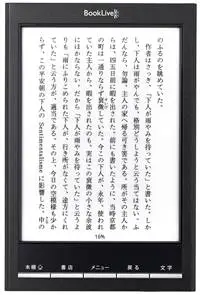 BookLive!
のふるのを眺めていた。
作者はさっき、「下人が雨やみを待っていた」と書いた。しか
し、下人は雨がやんでも、格別どうしようと云う当てはない。ふ
だんなら、勿論、主人の家へ帰る可き筈である。所がその主人か
らは、四五日前に暇を出された。前にも書いたように、当時京都
の町は一通りならず衰微していた。今この下人が、永年、使われ
ていた主人から、暇を出されたのも、実はこの衰微の小さな余波
にほかならない。だから「下人が雨やみを待っていた」と云うよ
りも「雨にふりこめられた下人が、行き所がなくて、途方にくれ
ていた」と云う方が、適当である。その上、今日の空模様も少か
らず、この平安朝の下人の Sentimentalisme に影響した。申の
16%
本棚
書店
メニュー
戻る
文字